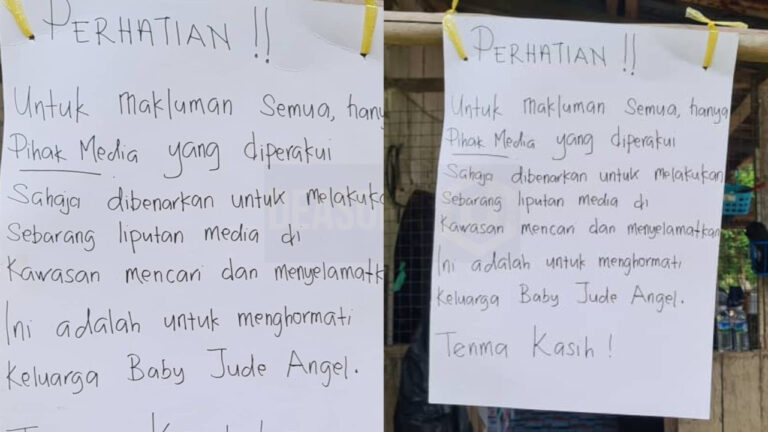 PERHATIAN !!
Untuk makluman semua, hanya
Pihak Media yang diperakui
Sahaja dibenarkan untuk melakukan
Sebarang liputan media di
Kawasan mencari dan menyelamat
Ini adalah untuk menghormati
Keluarga Baby Jude Angel.
PERHATIAN !!
Untuk makluman semua, hanya
Pihak Media yang diperakui
Sahaja dibenarkan untuk melakukan
Sebarang liputan media di
Kawasan mencari dan menyelamatkan
Ini adalah untuk menghormati
Keluarga Baby Jude Angel.
Tenma Kasih !